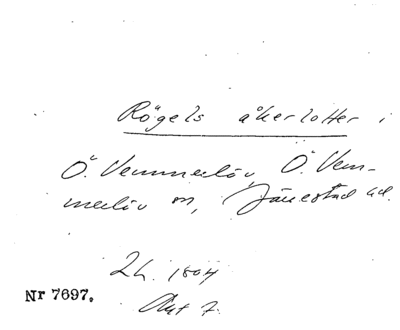 Rögels åkerlotter i
Ö. Vemmerlöv, Ö. Vem-
merlöv sn, Järrestad hd.
2h. 1804
Akt 7.
Nr 7697.